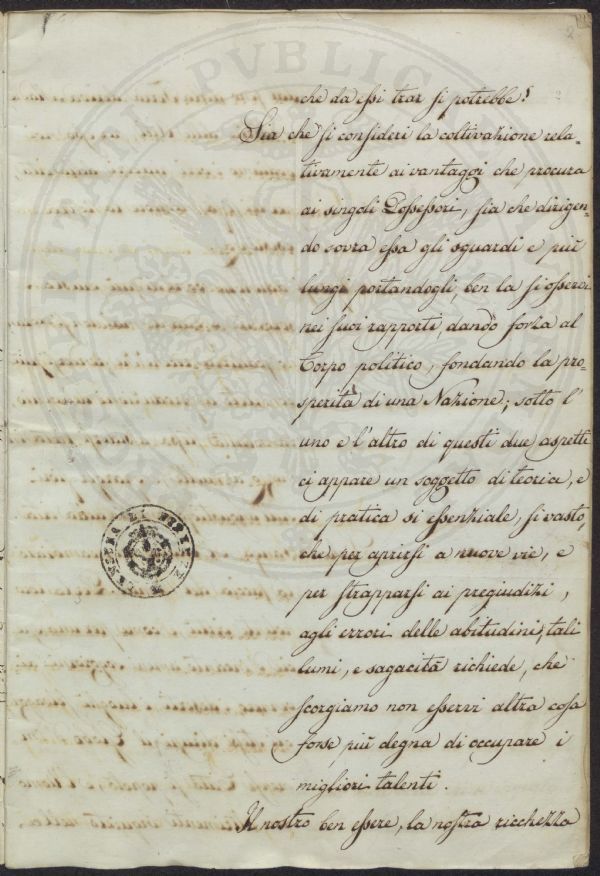 che da essi trar si potrebbe!
Sia che si consideri la coltivazione rela-
tivamente ai vantaggi che procura
ai singoli Possessori, sia che dirigen-
do sovra essa gli sguardi e più
lungi portandogli, ben la si osservi
nei suoi rapporti, dando forza al
Corpo politico, fondando la pro-
sperità di una Nazione; sotto l'
uno e l'altro di questi due aspetti
ci appare un soggetto di teorica, e
di pratica si essenziale, si vasto,
che per aprirsi a nuove vie, e
per strapparsi ai pregiudizi,
agli errori delle abitudini, tali
lumi, e sagacità richiede, che
scorgiamo non esservi altra cosa
forse più degna di occupare i
migliori talenti.
Il nostro ben essere, la nostra ricchezza